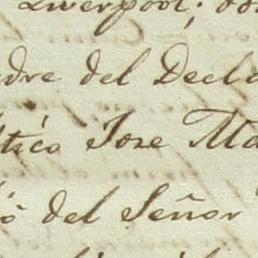 Liverpool. do
dre del Decla
tico Jose Ma
ó del Señor